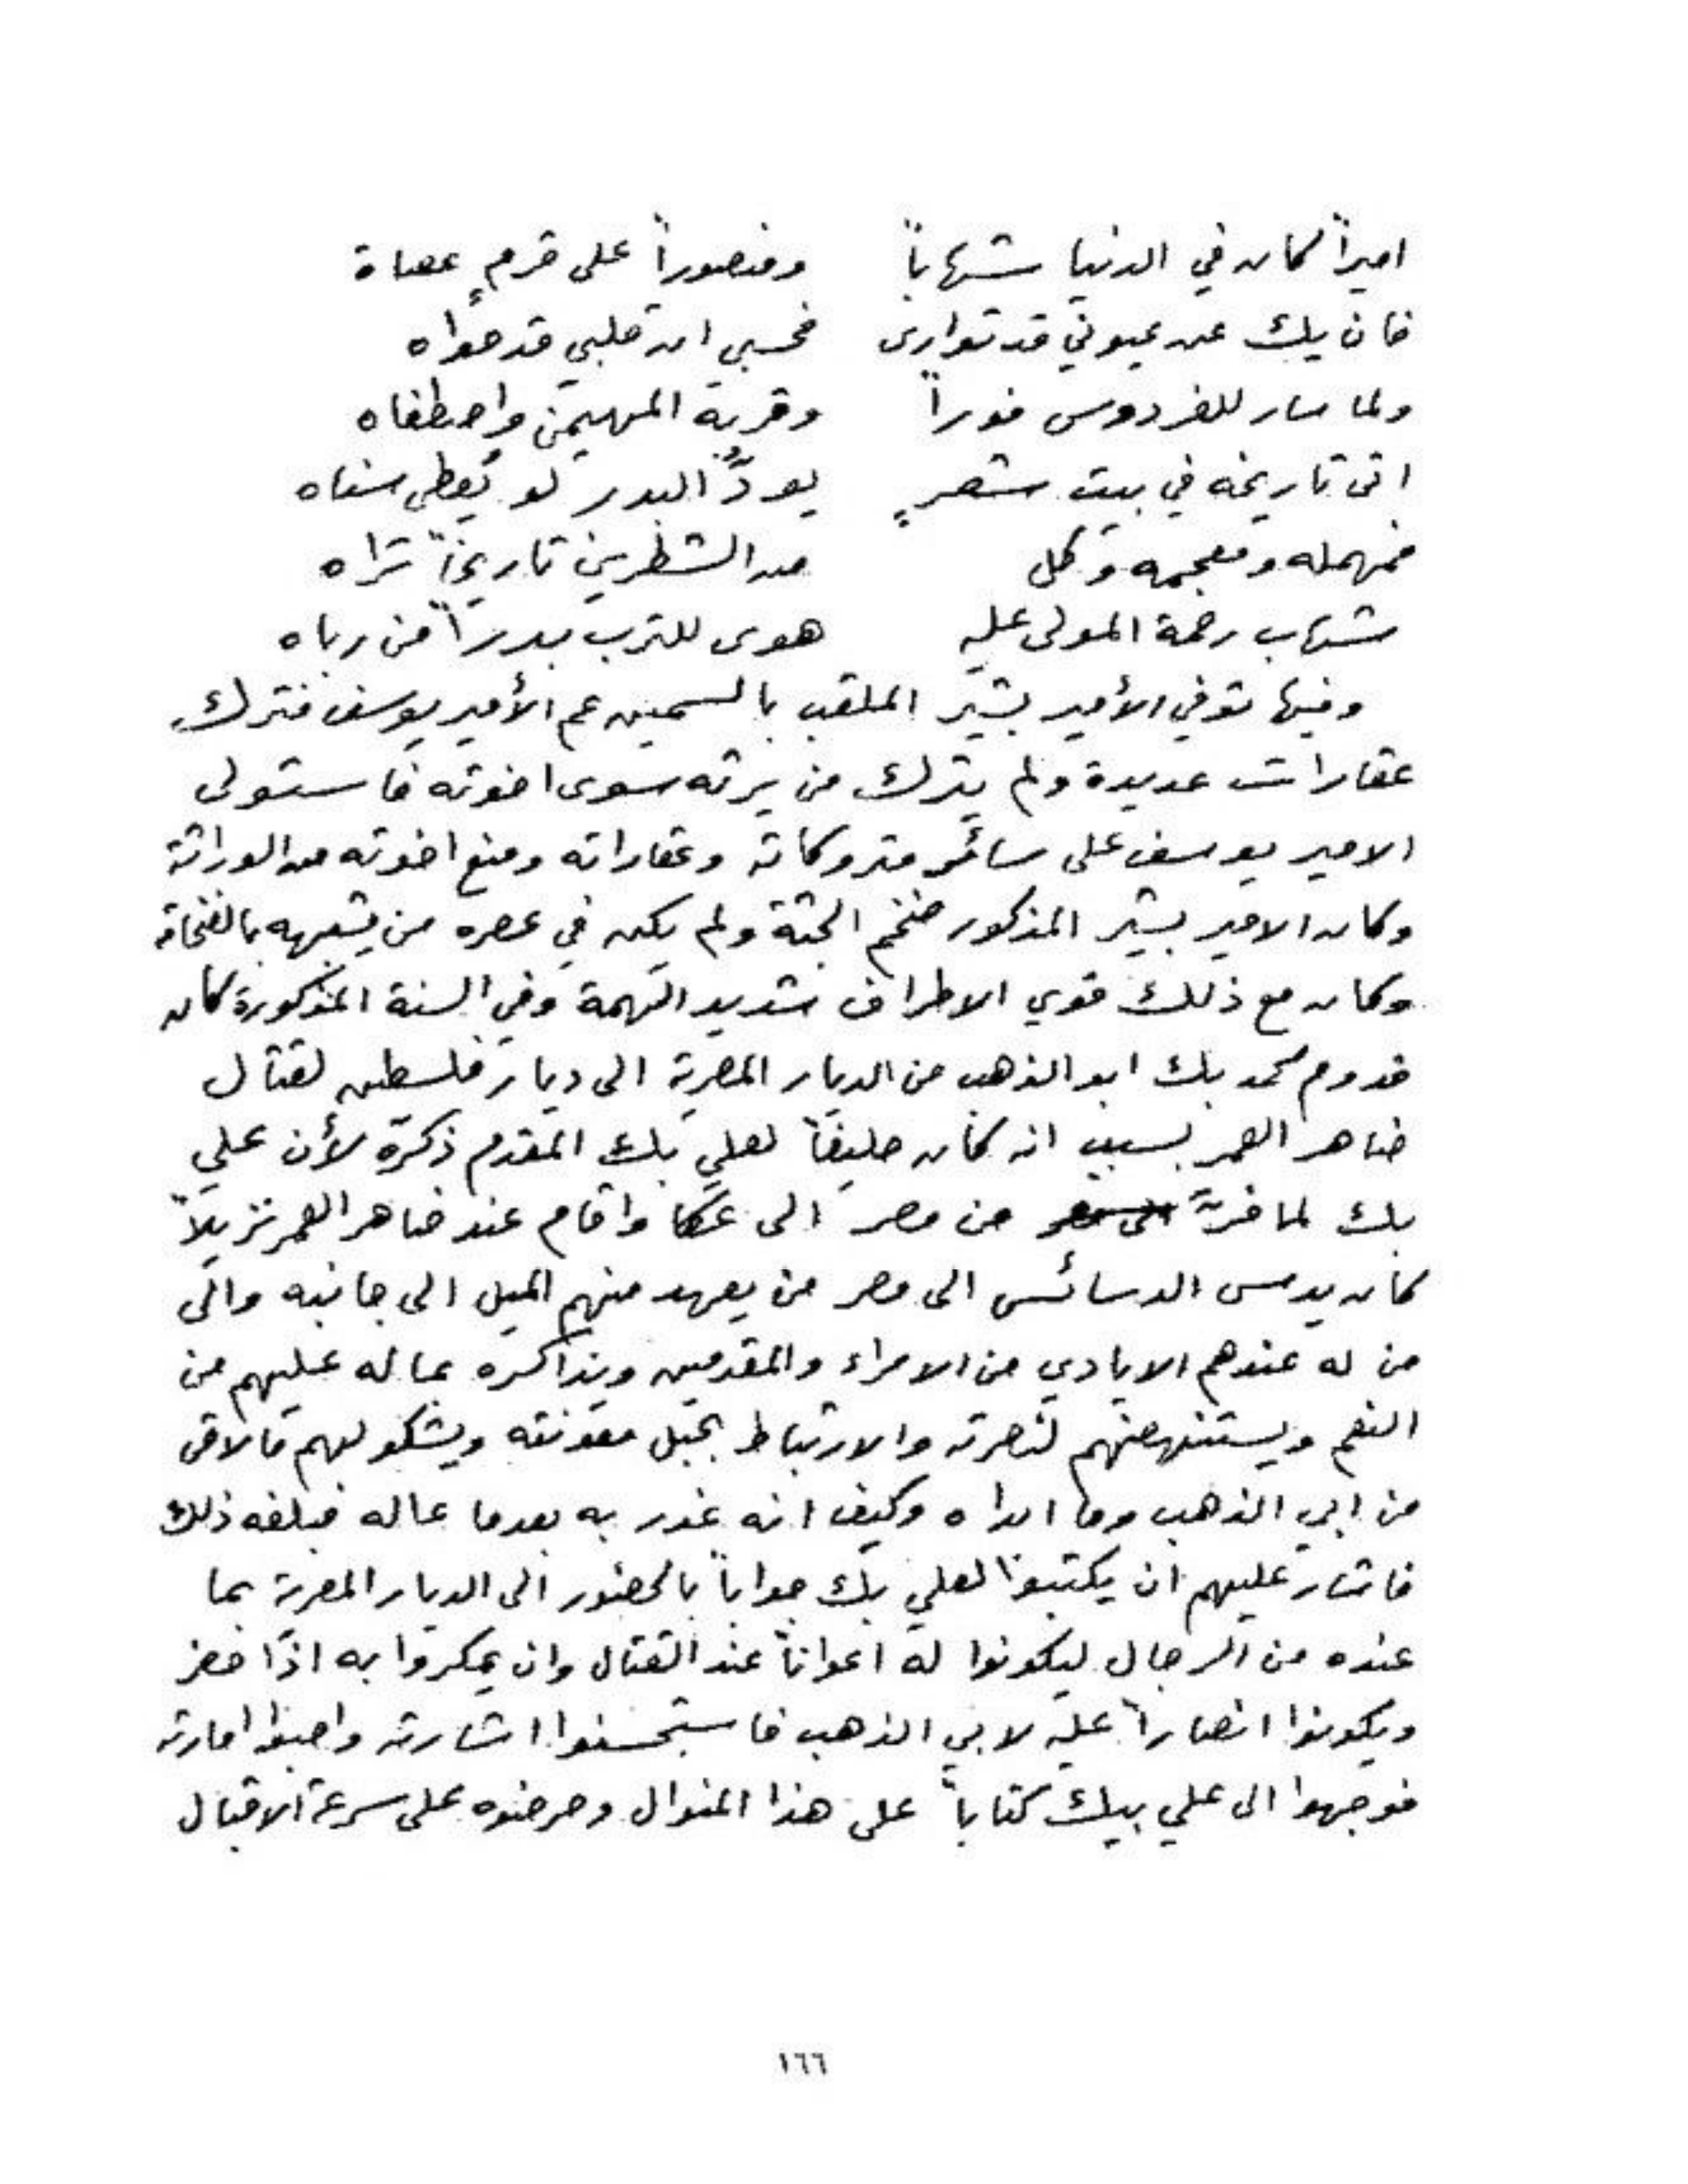 اميراً كان في الدنيا شهاباً ومنصوراً على قرمٍ عصاة
فان يك عن عيوني قد توارى فحسبي ان قلبي قد حواه
ولما سار للفردوس فوراً وقربه المهيمن واصطفاه
اتى تاريخه في بيت شعرٍ يودُّ البدر لو يُعطى سناه
فمهمله ومعجمه وكل من الشطرين تاريخاً تراه
شهاب رحمة المولى عليه هوى للترب بدراً من رباه
وفيها توفي الأمير بشير الملقب بالسمين عم الأمير يوسف فترك
عقارات عديدة ولم يترك من يرثه سوى اخوته فاستولى
الامير يوسف على سائر متروكاته وعقاراته ومنع اخوته من الوراثة
وكان الامير بشير المذكور ضخم الجثة ولم يكن في عصره من يشبهه بالضخامة
وكان مع ذلك قوي الاطراف شديد الهمة وفي السنة المذكورة كان
قدوم محمد بك ابو الذهب من الديار المصرية الى ديار فلسطين لقتال
ضاهر العمر بسبب انه كان حليفاً لعلي بك المقدم ذكره لأن علي
بك لما فرّ من مصر الى عكا واقام عند ضاهر العمر نزيلاً
كان يدس الدسائس الى مصر من يعهد منهم الميل الى جانبه والى
من له عندهم الايادي من الامراء والمقدمين ويذاكره بما له عليهم من
النعم ويستنهضهم لنصرته والارتباط بحبل معونته ويشكو لهم ما لاقى
من ابي الذهب وما ابداه وكيف انه غدر به بعدما عاله فبلغه ذلك
فاشار عليهم ان يكتبوا لعلي بك جواباً بالحضور الى الديار المصرية بما
عنده من الرجال ليكونوا له اعواناً عند القتال وان يمكروا به اذا حضر
ويكونوا انصاراً عليه لابي الذهب فاستحسنوا اشارته واجبوا امارته
فوجهوا الى علي بيك كتاباً على هذا المنوال وحرضوه على سرعة الاقبال
١٦٦